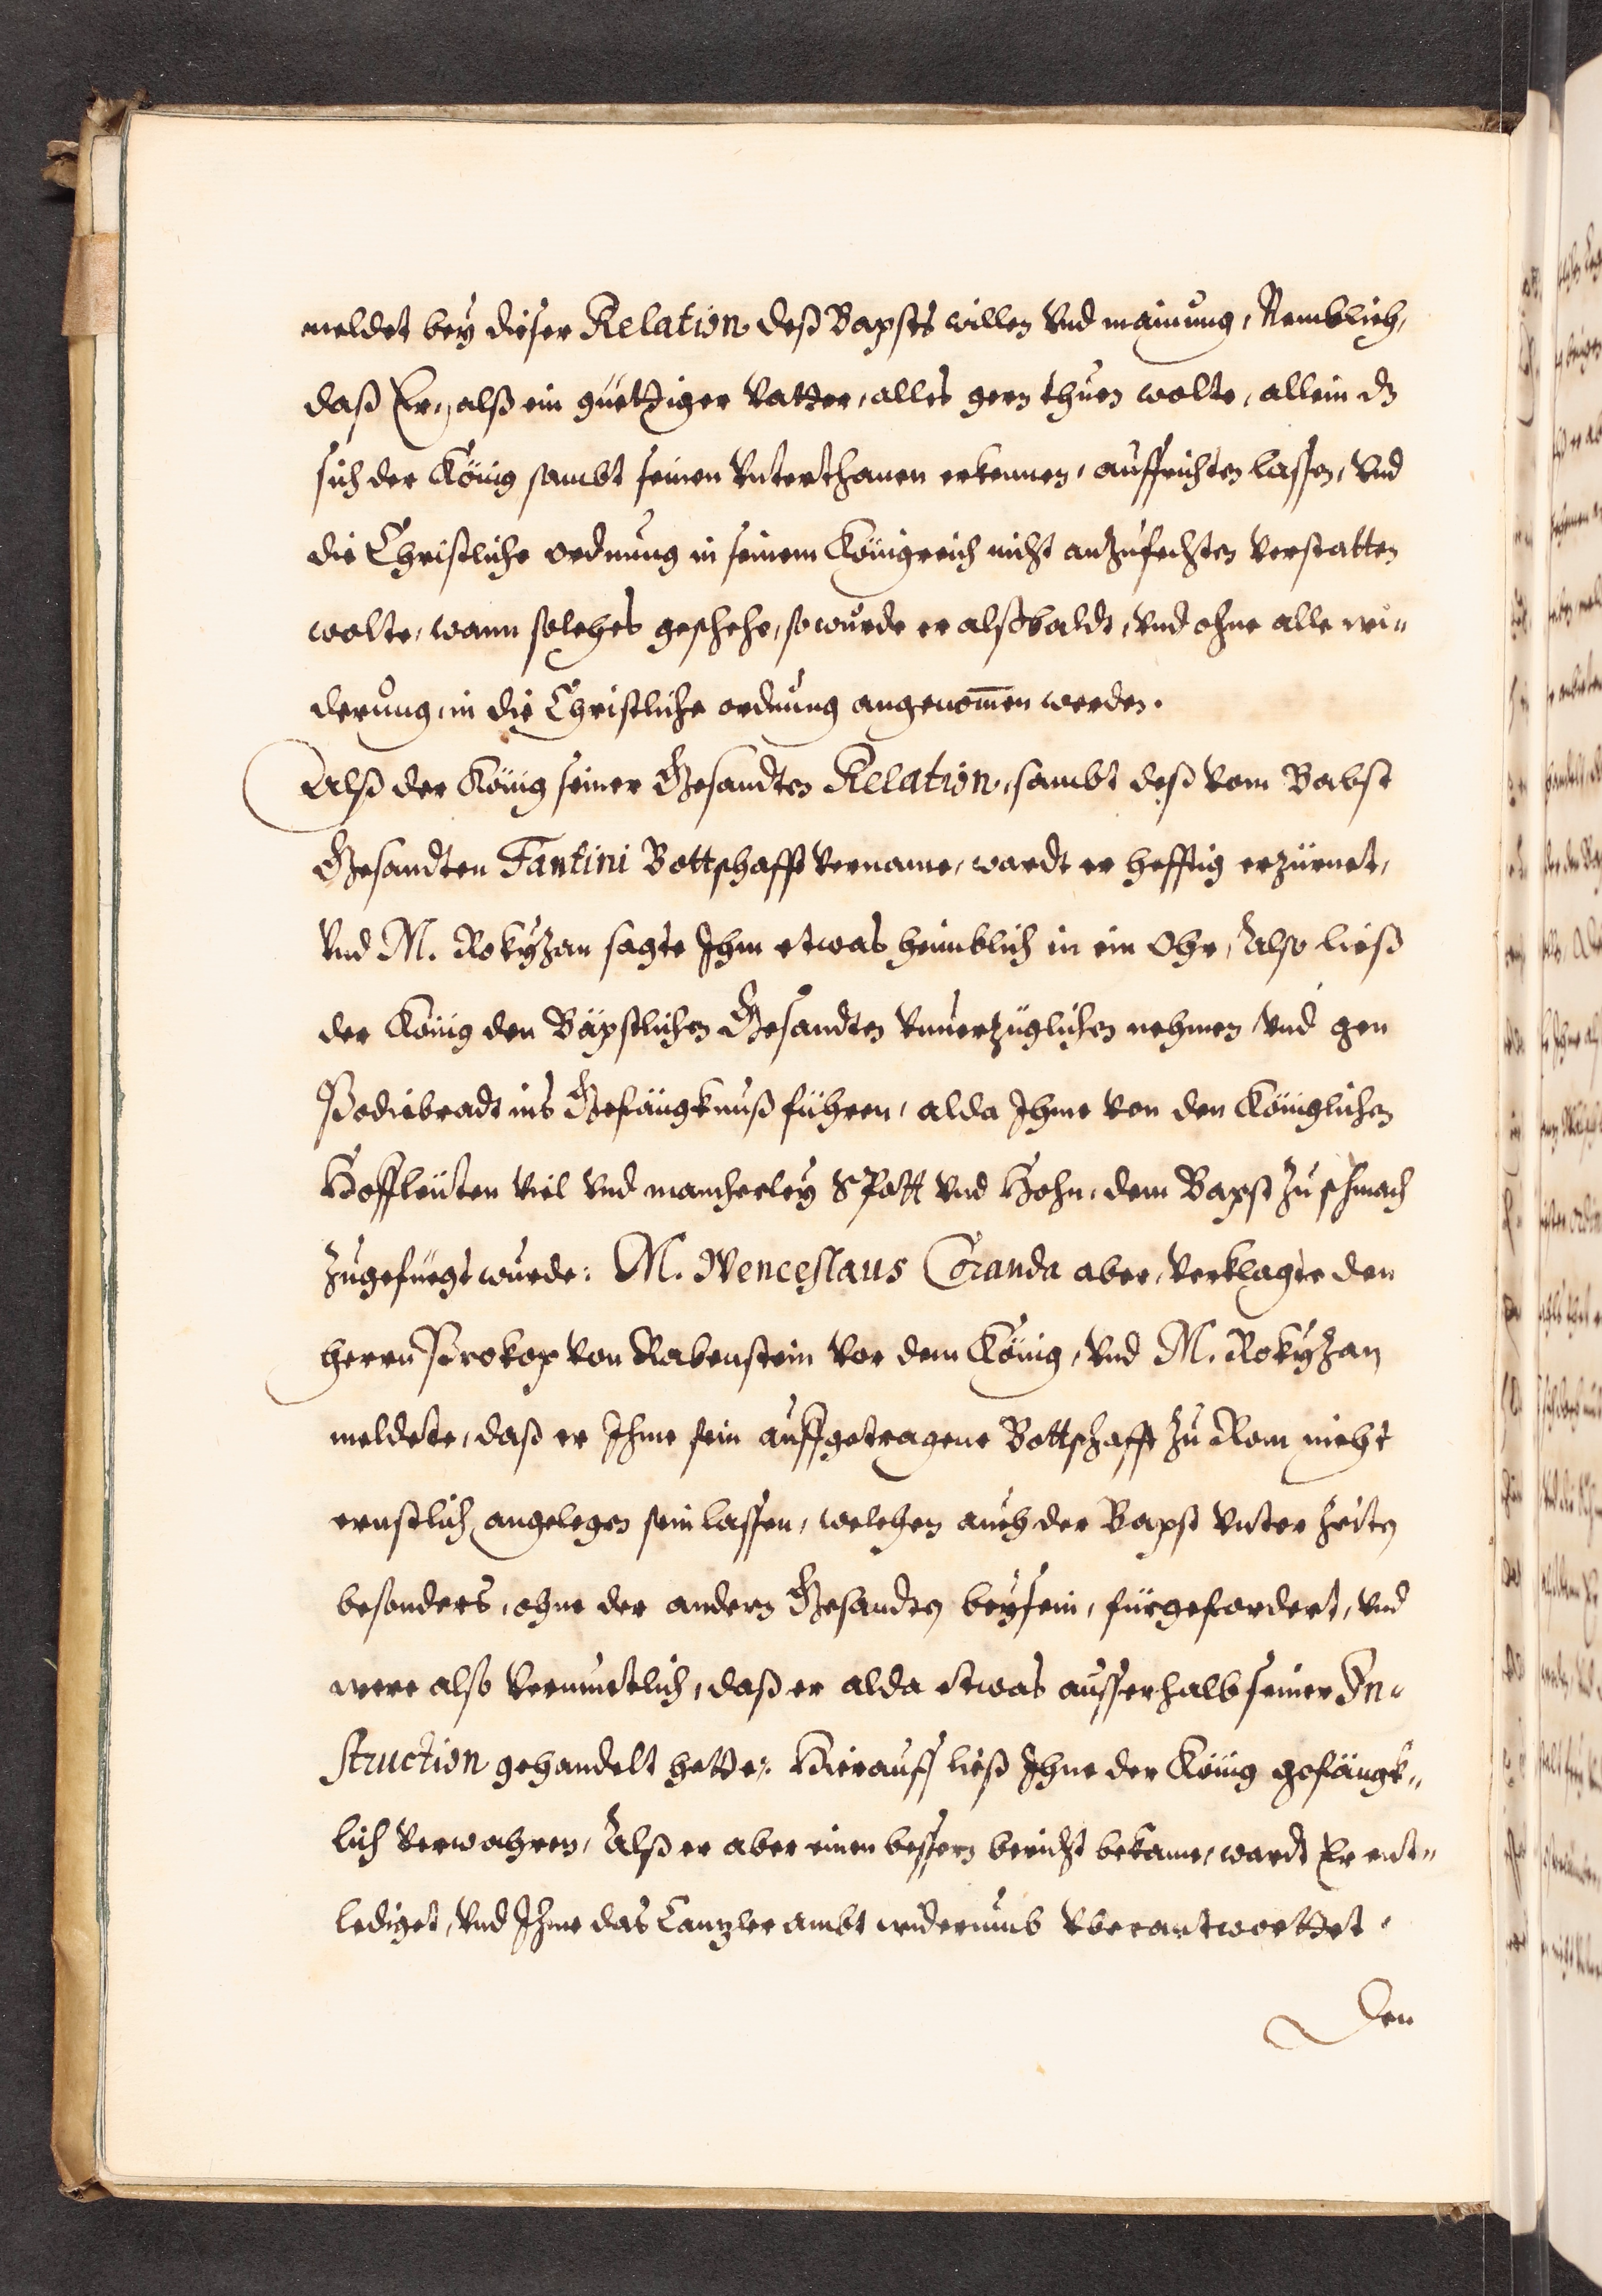 meldet bey dieser Relation deß Bapsts willen vnd mainung, Nemblich,
daß Er, alß ein guettiger Vatter, alles gern thuen wolte, allein dz
sich der König sambt seinen Vnterthanen erkennen, auffrichten lassen, vnd
die Christliche ordnung in seinem Königreich nicht anzufechten verstatten
wolte, wann solches geschehe, so wurde er alßbaldt, vnd ohne alle wi„
derung, in die Christliche ordnung angenom̅en werden.
Alß der König seiner Gesandten Relation, sambt deß vom Babst
Gesandten Fantini Bottschafft vername, wardt er hefftig erzürnet,
Vnd M. Rokÿzan sagte Ihm etwas heimblich in ein Ohr, Also ließ
der König den Bäpstlichen Gesandten vnuerzüglichen nehmen, vnd gen
Podiebradt ins Gefängknuß führen, alda Ihme von den Königlichen
Hoffleüten viel vnd mancherley Spott vnd Hohn, dem Bapst zu schmach
zugefüegt wurde: M. Wenceslaus Coranda aber, verklagte den
herrn Prokop von Rabenstein vor dem König, vnd M. Rokÿzan
meldete, daß er Ihme sein auffgetragene Bottschafft zu Rom nicht
ernstlich angelegen sein lassen, welchen auch der Bapst vnter zeiten
besonders, ohne der andern Gesandten beysein, fürgefordert, vnd
were also vermuetlich, daß er alda etwas ausserhalb seiner In„
struction gehandelt hette: Hierauff ließ Ihne der König gefängk„
lich verwahren, Alß er aber einen bessern bericht bekame, wardt Er ent„
lediget, vnd Ihme das Canzler ambt widerumb vberantworttet.
Den